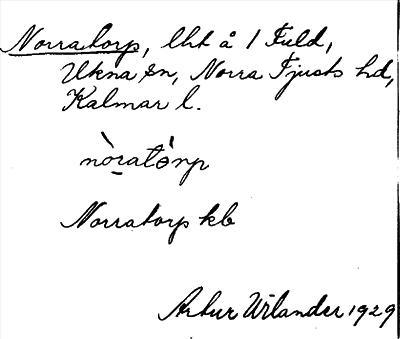 Norratorp, lht å 1 Fuld,
Ukna sn, Norra Tjusts hd,
Kalmar l.
nòratórp
Norratorp kb
Artur Wilander 1929